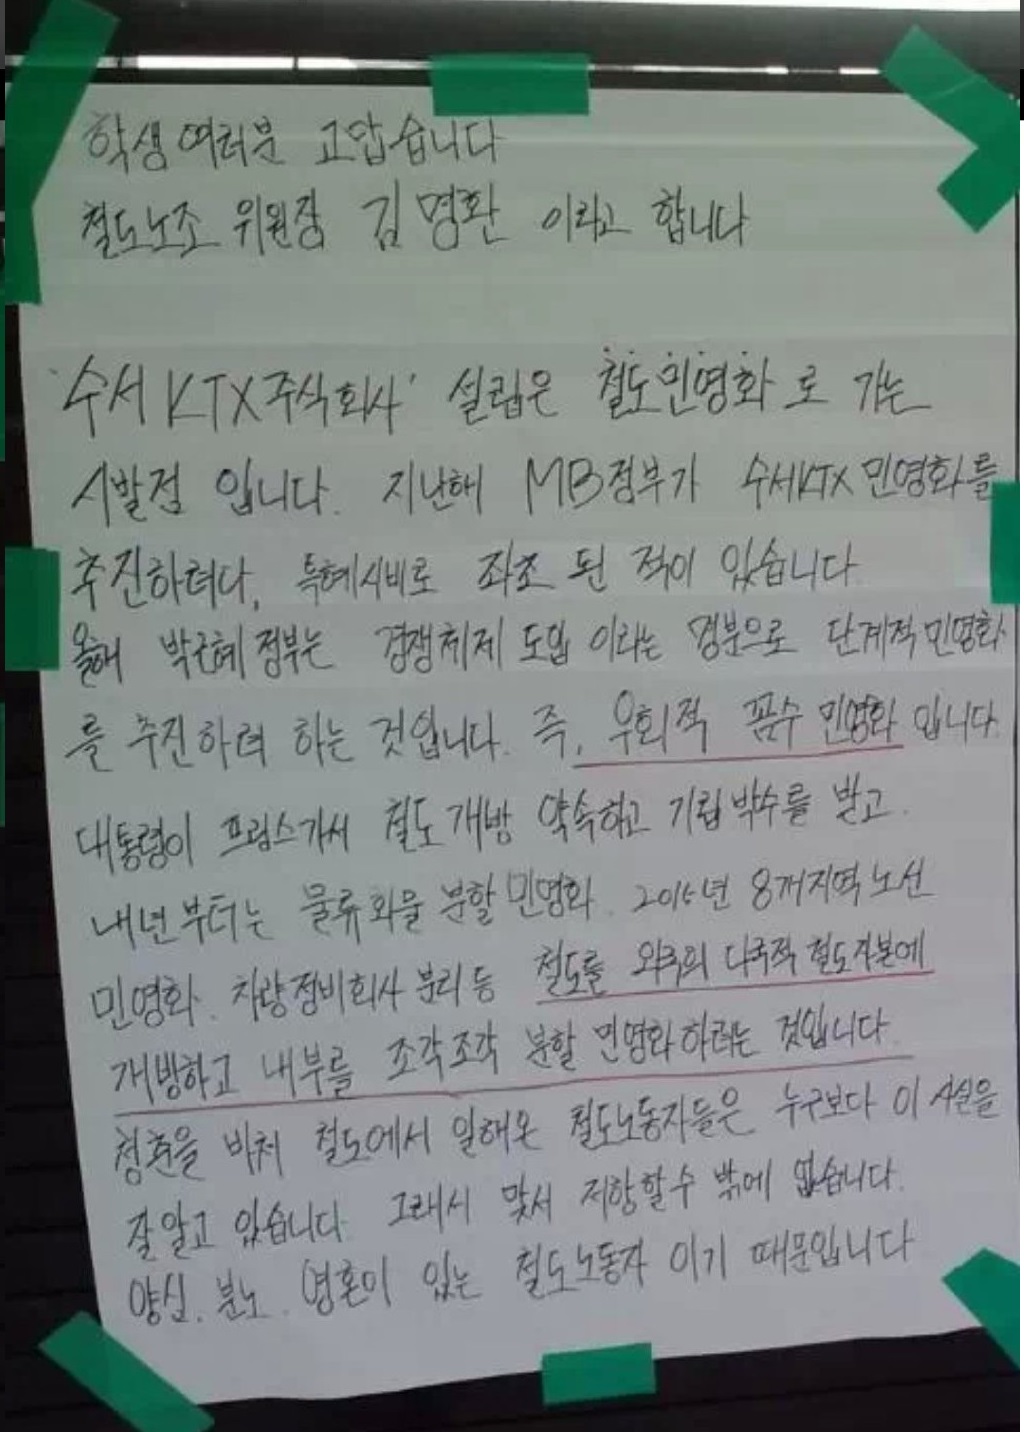 학생여러분 고맙습니다
철도노조 위원장 김명환 이라고 합니다
'수서KTX주식회사' 설립은 철도민영화로 가는
시발점 입니다. 지난해 MB정부가 수서KTX 민영화를
추진하려다, 특혜시비로 좌초 된 적이 있습니다.
올해 박근혜 정부는 경쟁체제 도입 이라는 명분으로 단계적 민영화
를 추진하려 하는 것입니다. 즉, 우회적 꼼수 민영화 입니다.
대통령이 프랑스가서 철도개방 약속하고 기립박수를 받고.
내년부터는 물류화물 분할민영화. 2015년 8개지역노선
민영화. 차량정비회사 분리등 철도를 외국의 다국적 철도자본에
개방하고 내부를 조각조각 분할 민영화하려는 것입니다.
청춘을 바쳐 철도에서 일해온 철도노동자들은 누구보다 이 사실을
잘알고 있습니다. 그래서 맞서 저항할수 밖에 없습니다.
양심. 분노. 영혼이 있는 철도노동자 이기 때문입니다